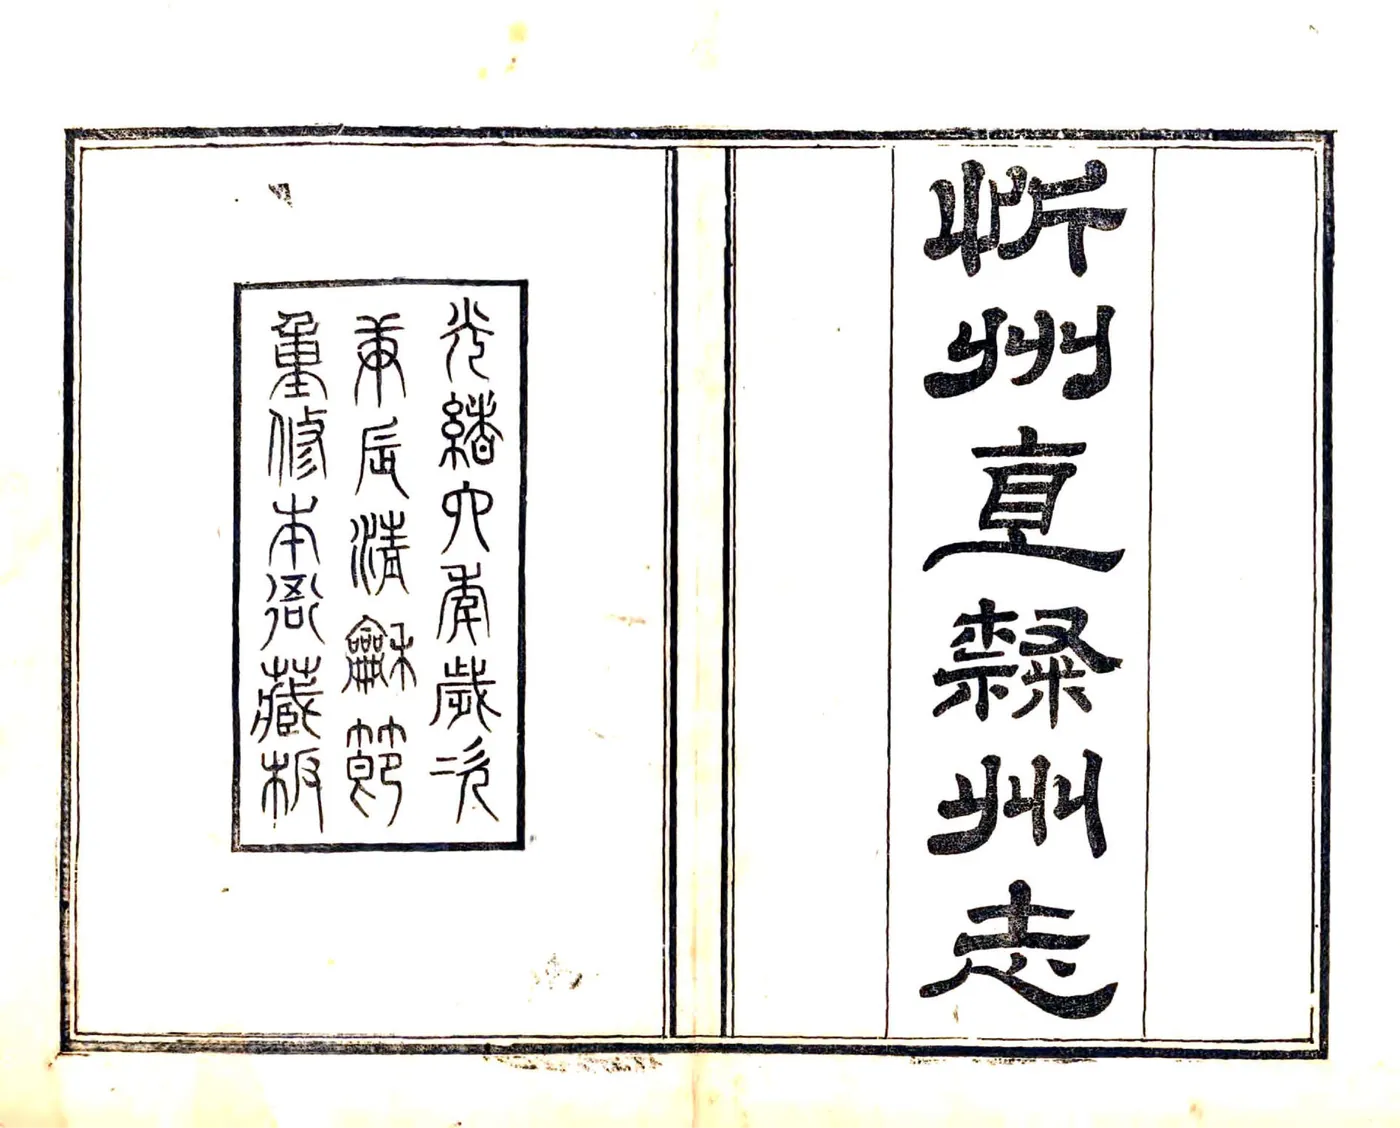 忻州直隸州志
光緒六年歲次
庚辰清龢節
重修本衙藏板